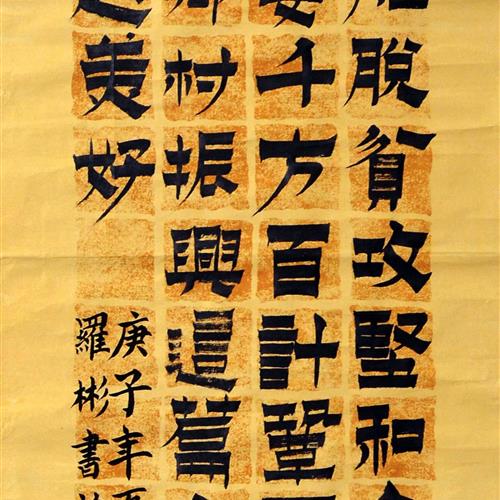 脫貧攻堅和
要千方百計鞏
鄉村振興這篇
美好
庚子年
羅彬書